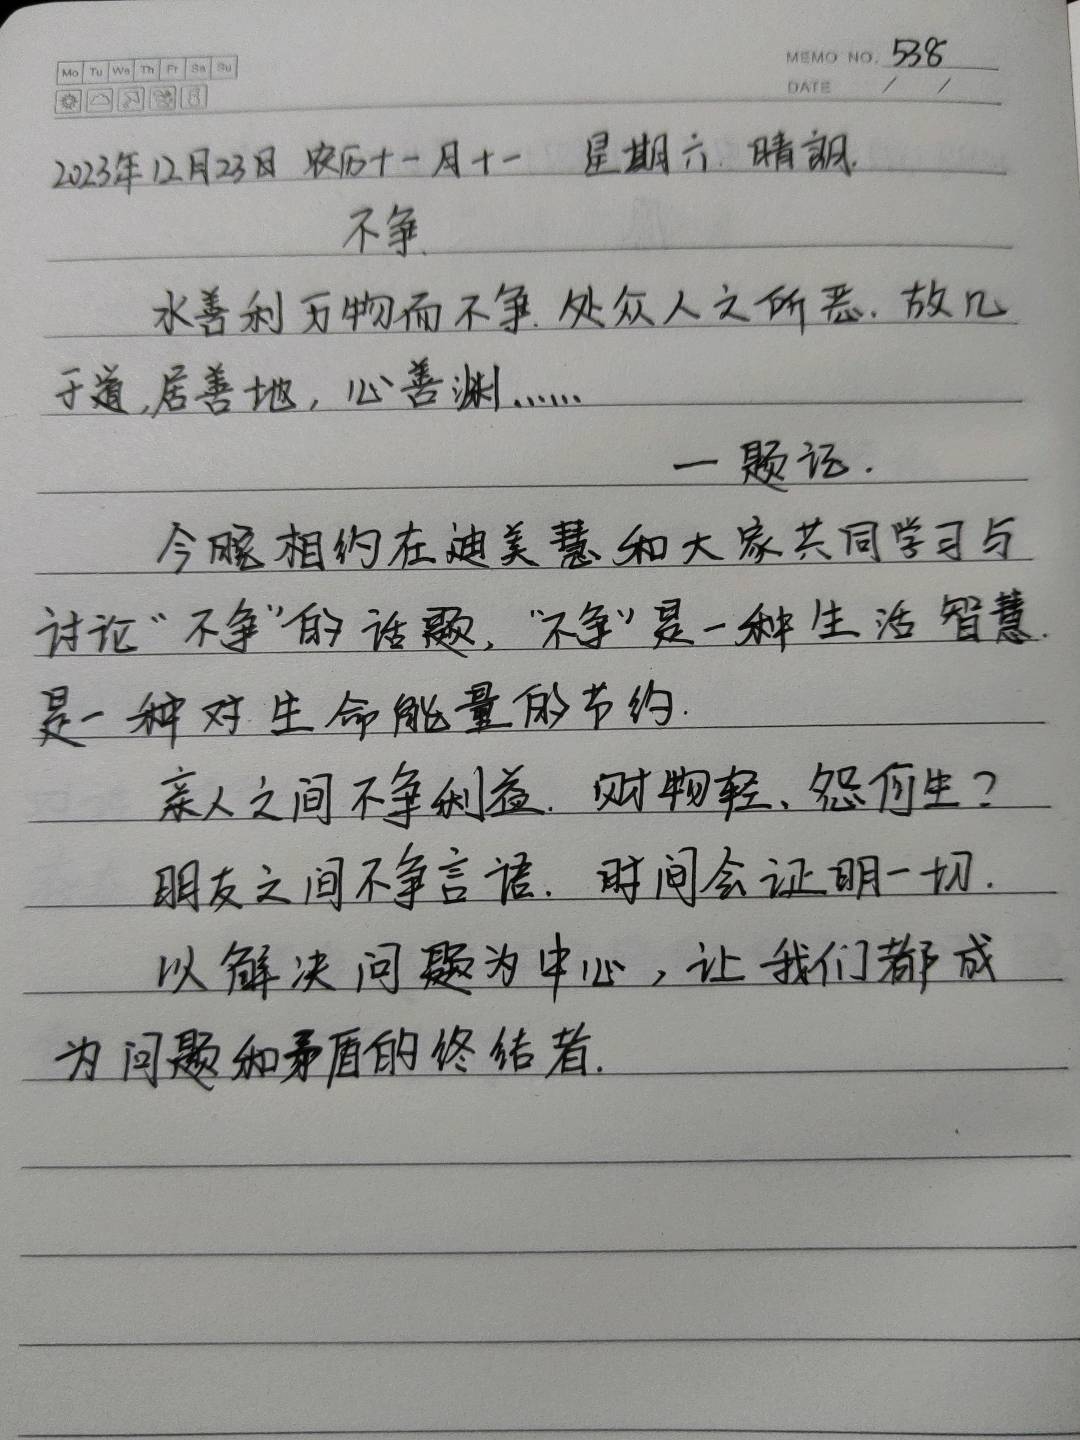 Mo Tu We Th Fr Sa Su
MEMO NO. 538
DATE / /
2023年12月23日 农历十一月十一 星期六.晴朗.
不争.
水善利万物而不争.处众人之所恶.故几
于道,居善地,心善渊……
一题记.
今晚相约在迪美慧和大家共同学习与
讨论“不争”的话题,“不争”是一种生活智慧.
是一种对生命能量的节约.
亲人之间不争利益.财物轻、怨何生?
朋友之间不争言语.时间会证明一切.
以解决问题为中心,让我们都成
为问题和矛盾的终结者.